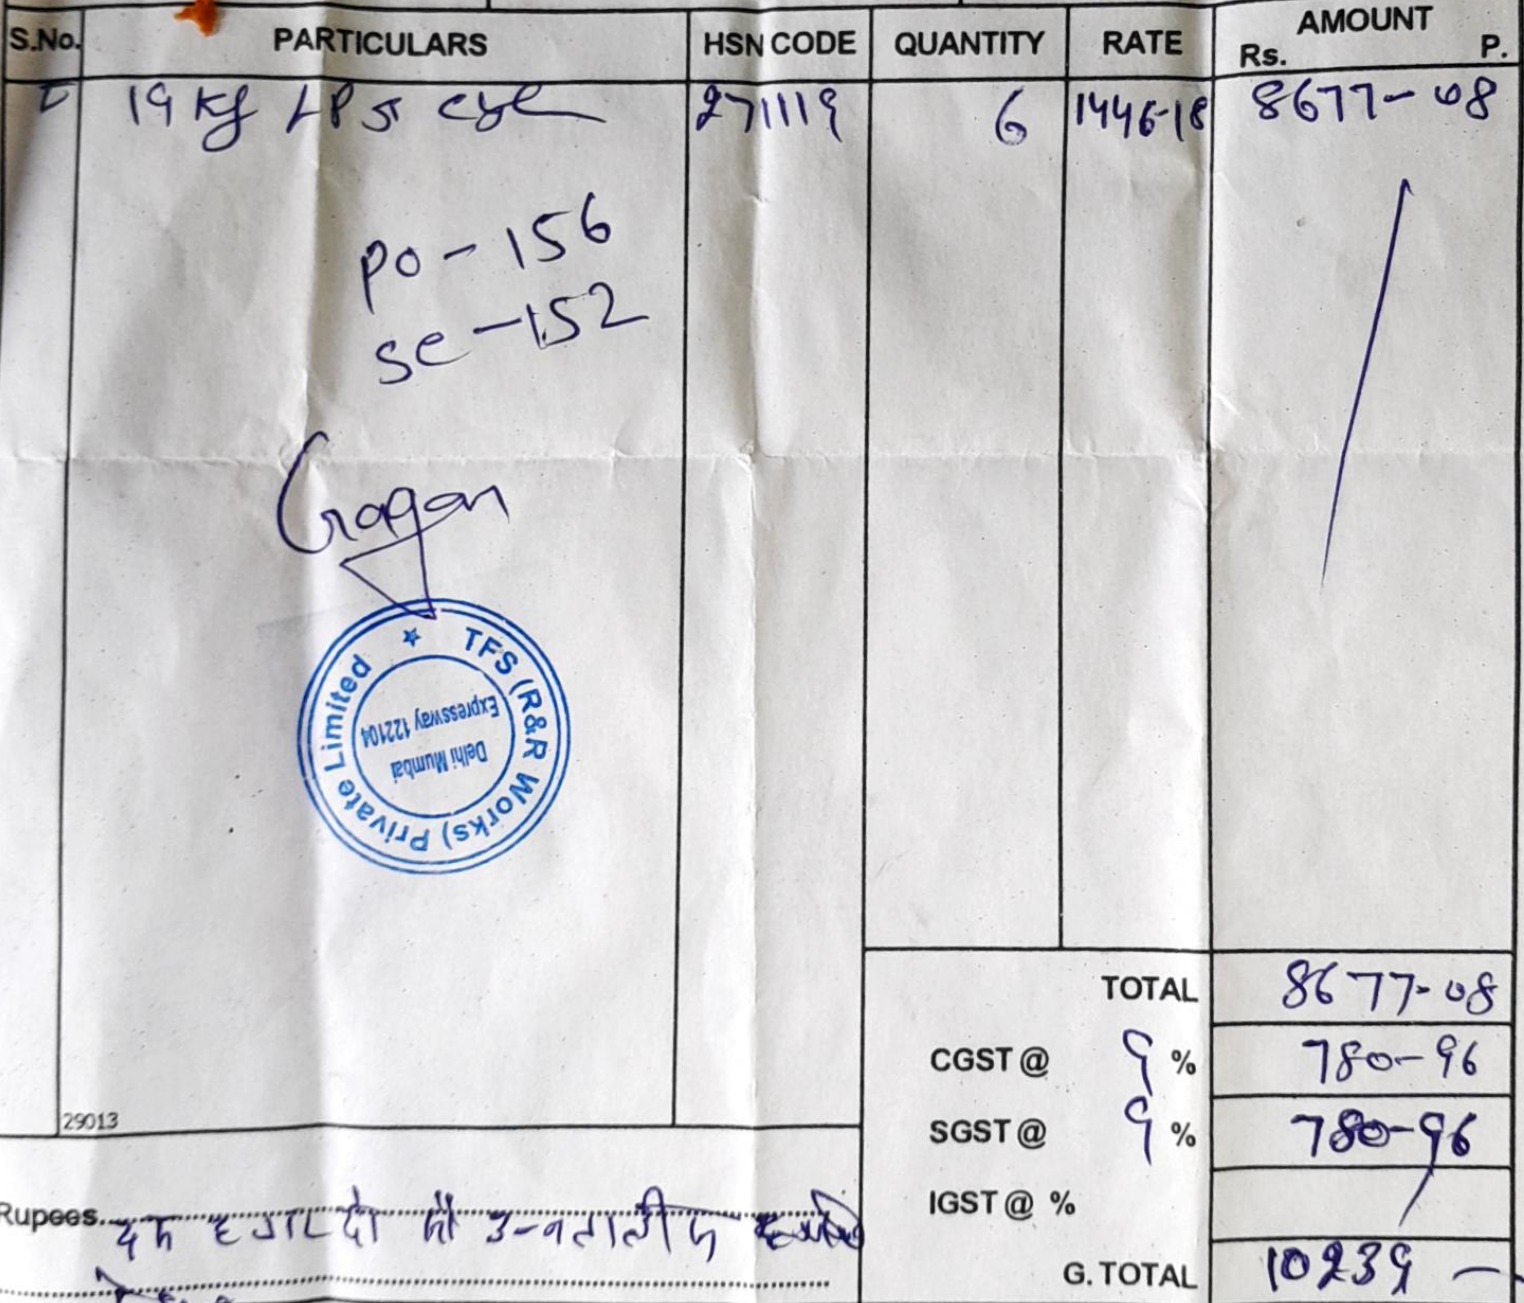 S.No. PARTICULARS HSN CODE QUANTITY RATE AMOUNT
Rs. P.
19 Kg LPG cyl 271119 6 1446-18 8677-08
PO-156
SE-152
Gagan
TFS (R&R Works) Private Limited
Delhi Mumbai
Expressway 122104
TOTAL 8677-08
CGST @ 9 % 780-96
29013
SGST @ 9 % 780-96
IGST @ %
Rupees दस हजार दो सौ उनतालीस
G. TOTAL 10239 —